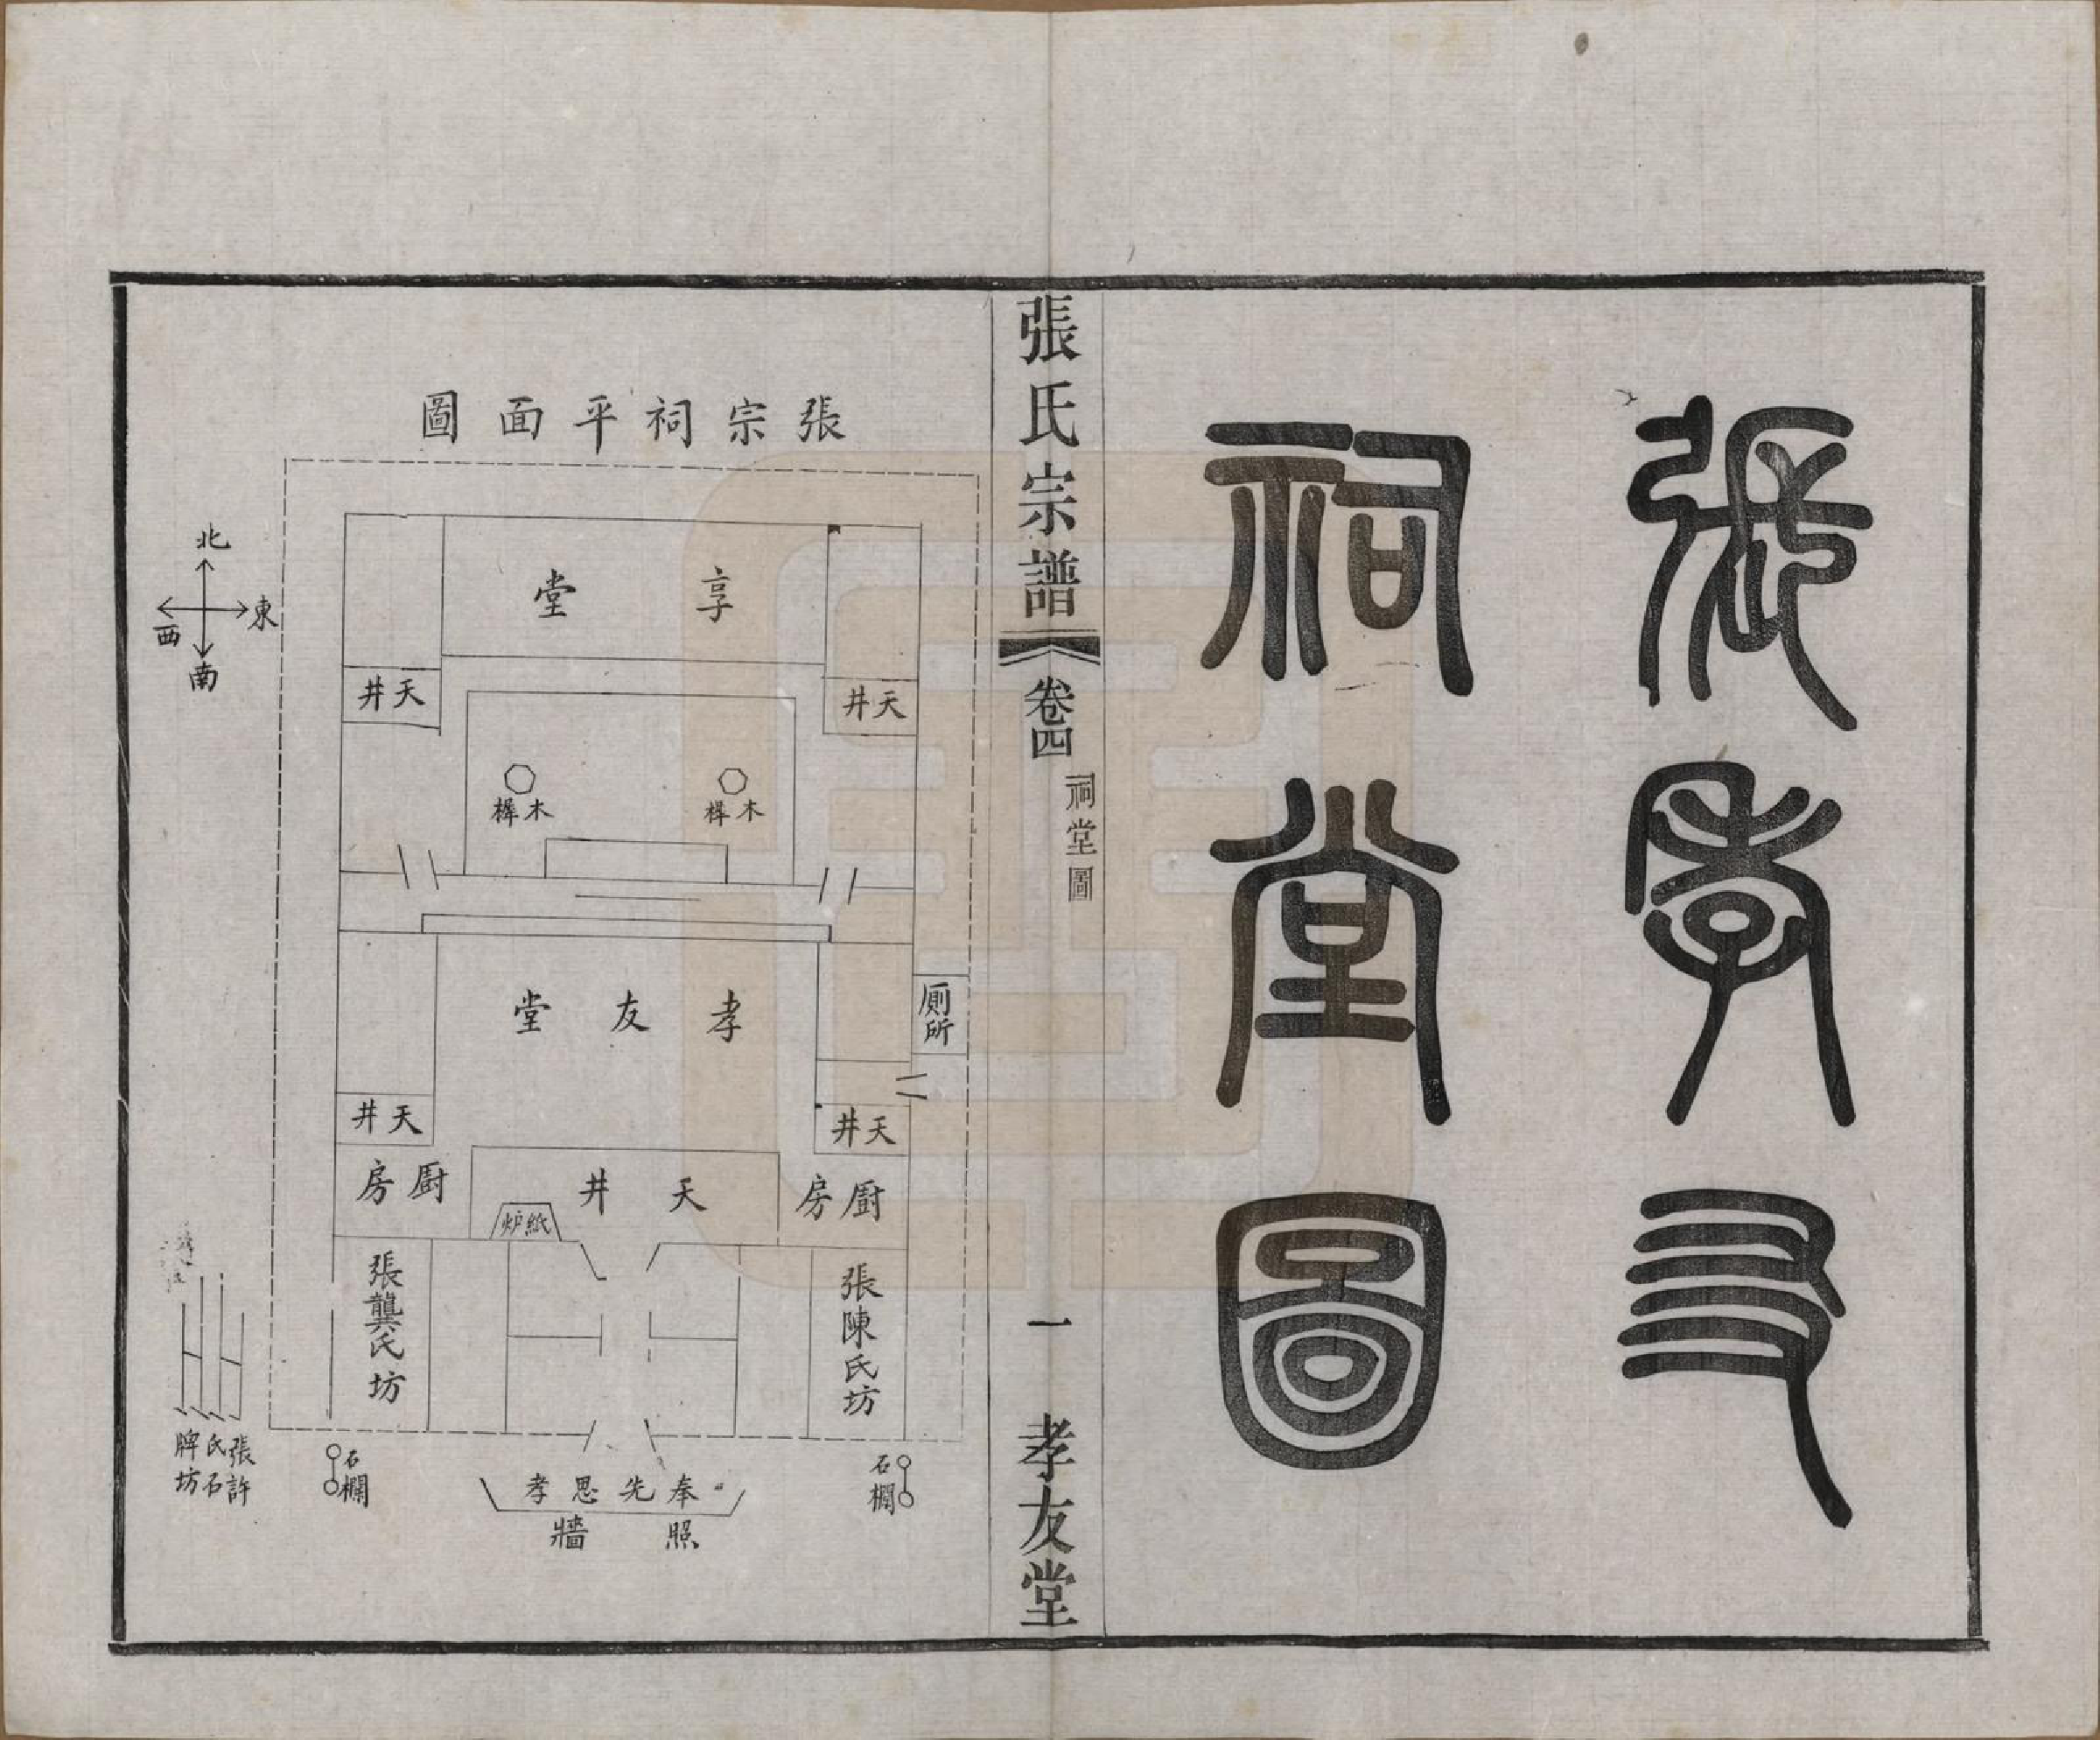 張孝友
祠堂圖
張氏宗譜
卷四
祠堂圖
一
孝友堂
張宗祠平面圖
北
東
西
南
享堂
天井
天井
木樨
木樨
孝友堂
厠所
天井
天井
厨房
天井
厨房
紙炉
張陳氏坊
張龔氏坊
石欄
石欄
奉先思孝
照牆
張許
氏石
牌坊